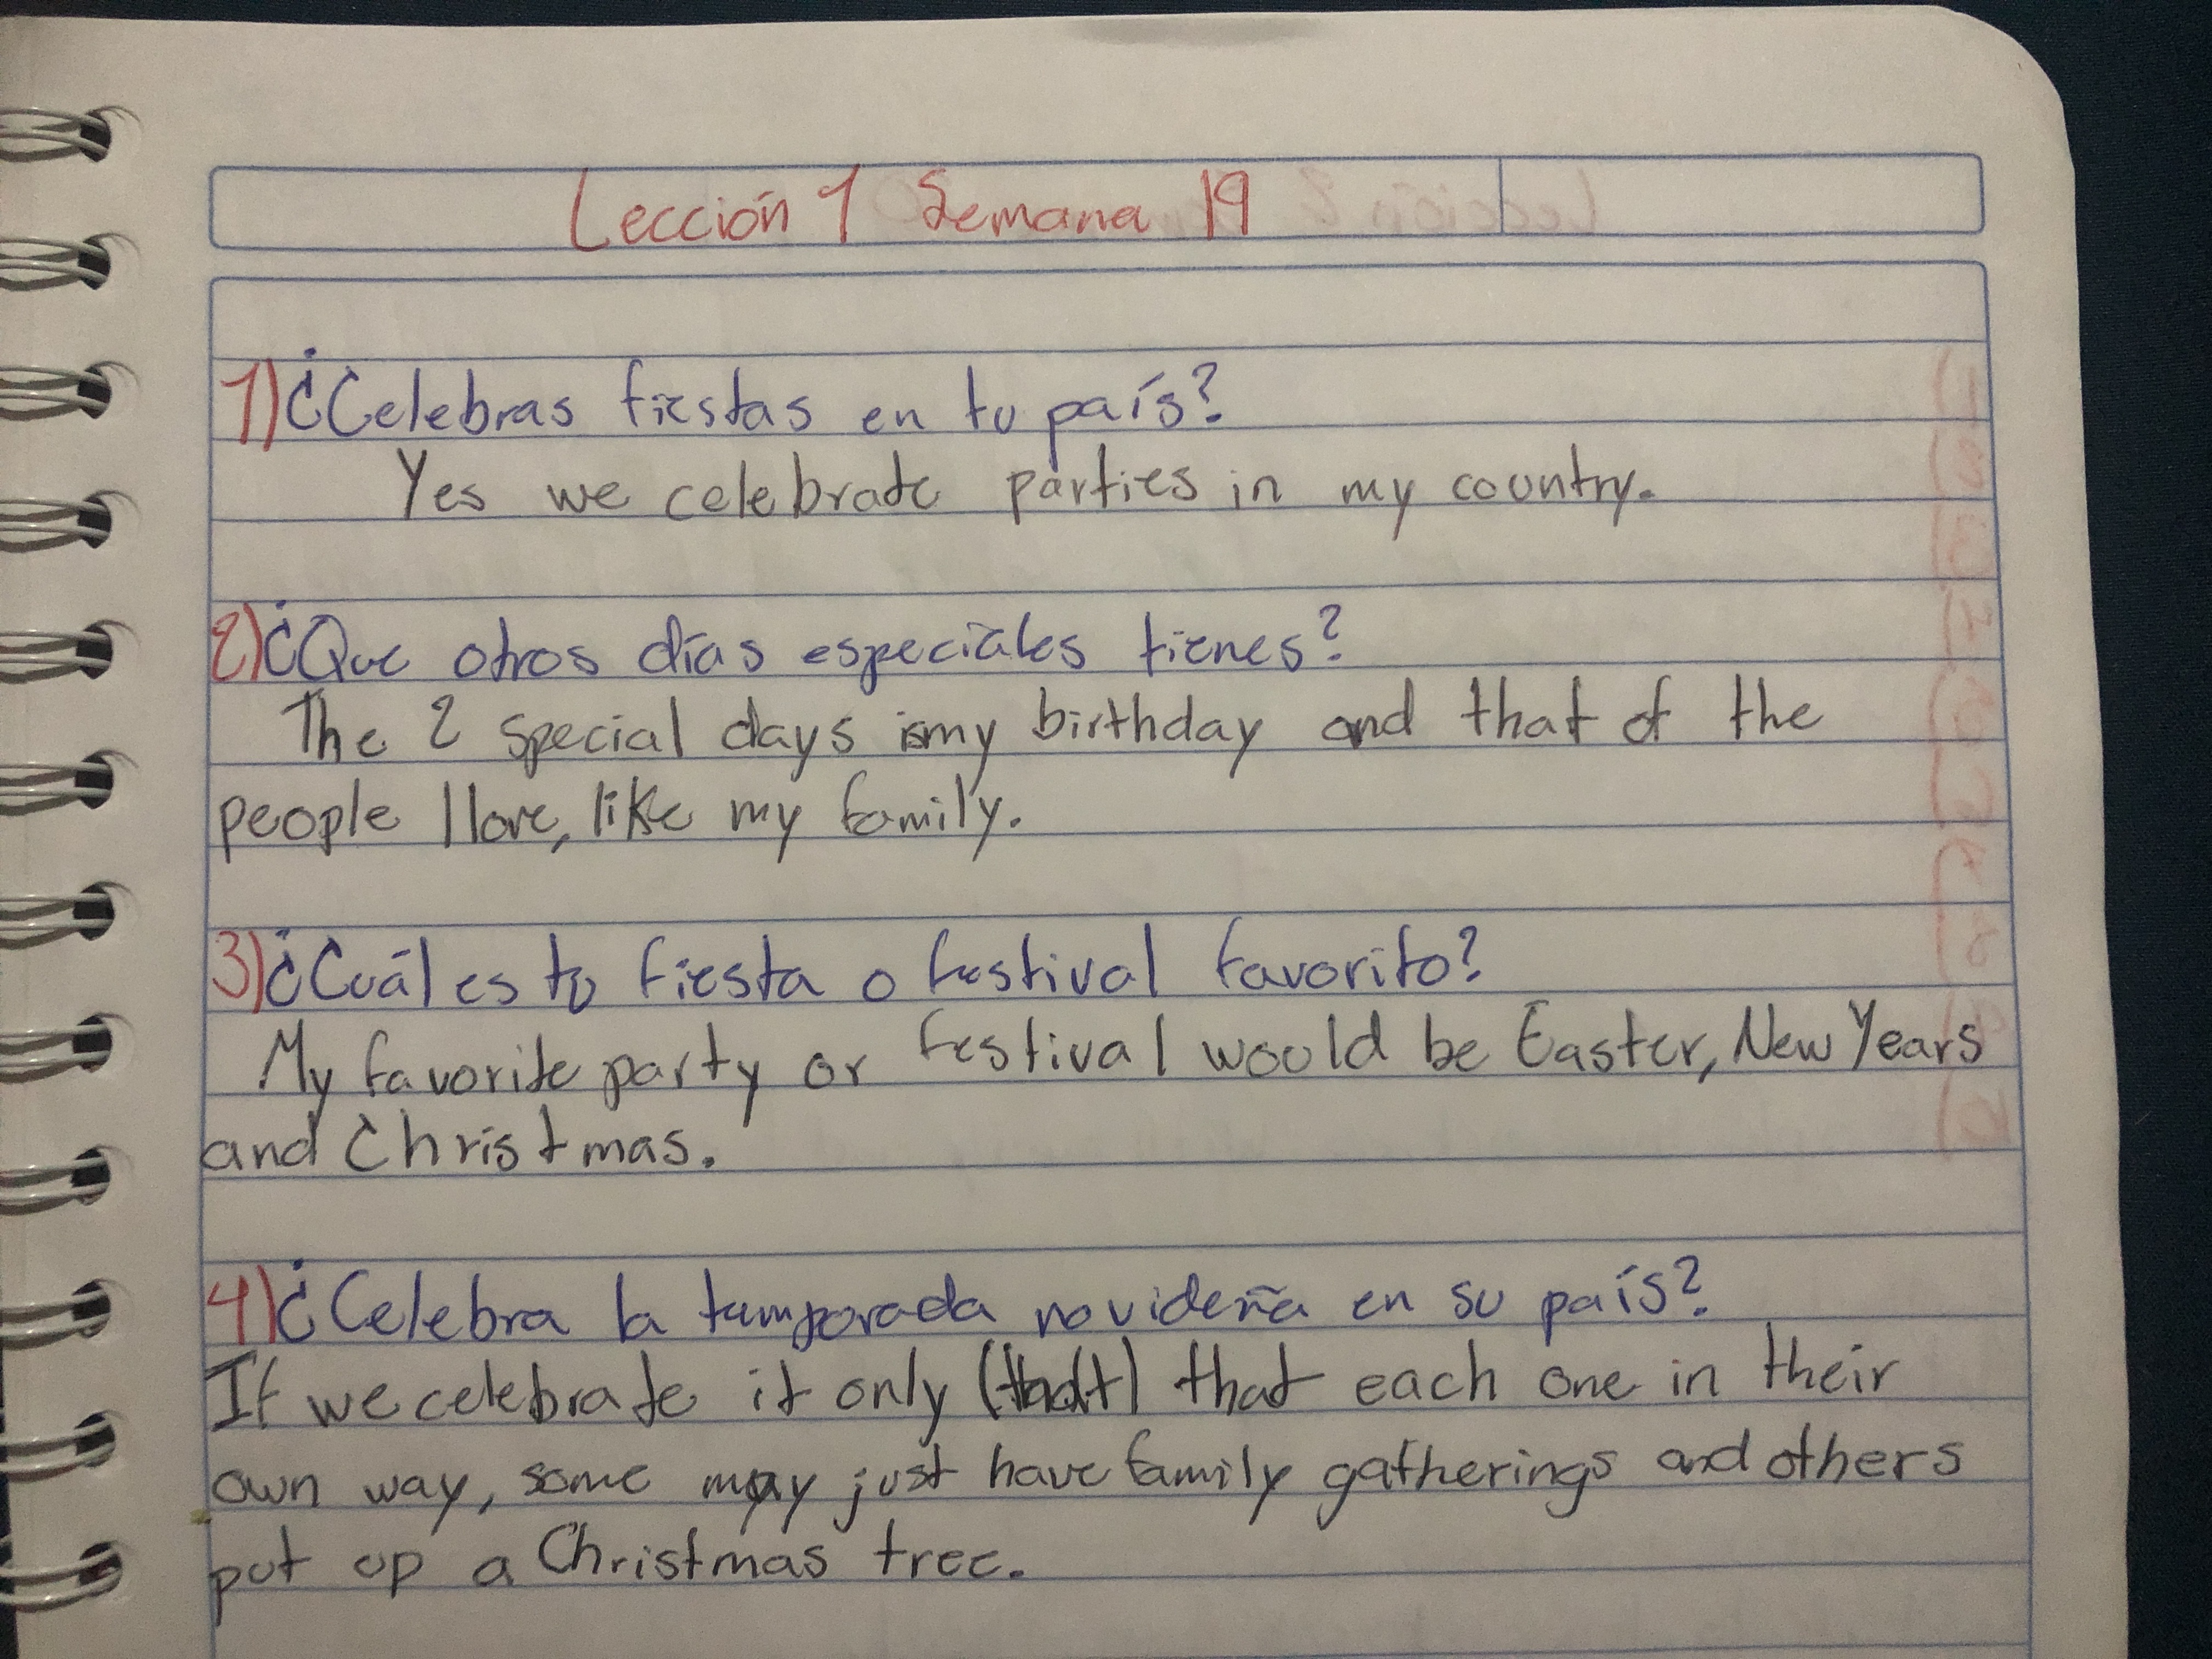 Lección 1 Semana 19
1) ¿Celebras fiestas en tu país?
Yes we celebrate parties in my country.
2) ¿Que otros días especiales tienes?
The 2 special days is my birthday and that of the
people I love, like my family.
3) ¿Cuál es tu fiesta o festival favorito?
My favorite party or festival would be Easter, New Years
and Christmas.
4) ¿Celebra la temporada novideña en su país?
If we celebrate it only (thadt) that each one in their
own way, some may just have family gatherings and others
put up a Christmas tree.